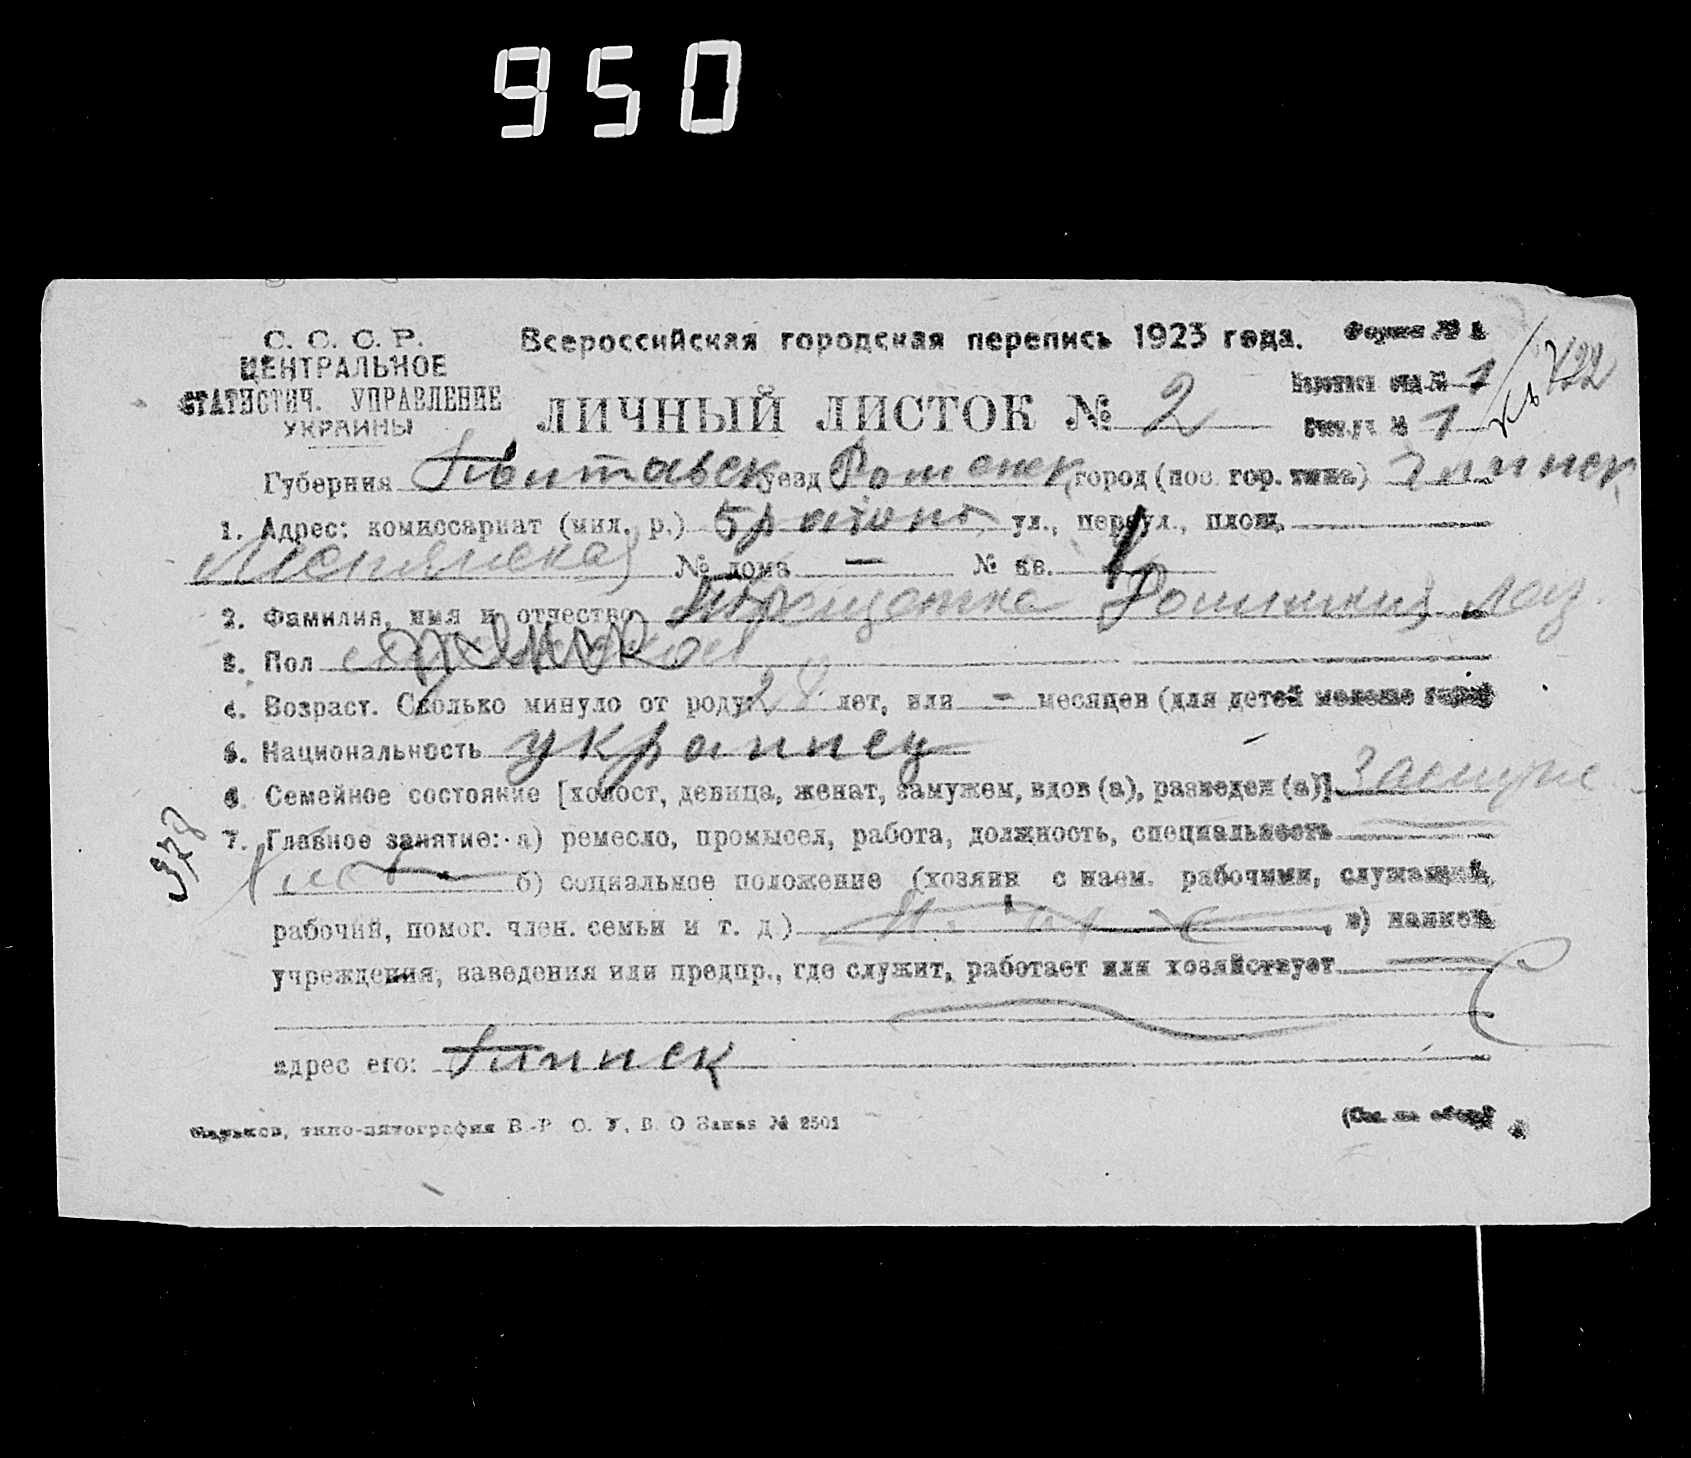 950
С. С. С. Р.
ЦЕНТРАЛЬНОЕ
СТАТИСТИЧ. УПРАВЛЕНИЕ
УКРАИНЫ
Всероссийская городская перепись 1923 года.
Форма № 1
ЛИЧНЫЙ ЛИСТОК № 2
отд. № 1
№ 1
422
Губерния Полтавск уезд Роменск город (пос. гор. типа) Глинск
1. Адрес: комиссариат (мил. р.) 5 район ул., переул., площ.
№ дома — № кв.
2. Фамилия, имя и отчество
3. Пол мужской
4. Возраст. Сколько минуло от роду: 28 лет, или — месяцев (для детей моложе года)
5. Национальность украинец
6. Семейное состояние [холост, девица, женат, замужем, вдов (а), разведен (а)]
378
7. Главное занятие: а) ремесло, промысел, работа, должность, специальность
б) социальное положение (хозяин с наем. рабочими, служащий,
рабочий, помог. член. семьи и т. д.) , в) наимен.
учреждения, заведения или предпр., где служит, работает или хозяйствует
адрес его: Глинск
Харьков, типо-литография В.-Р. О. У. В. О Заказ № 2501
(См. на обор.)